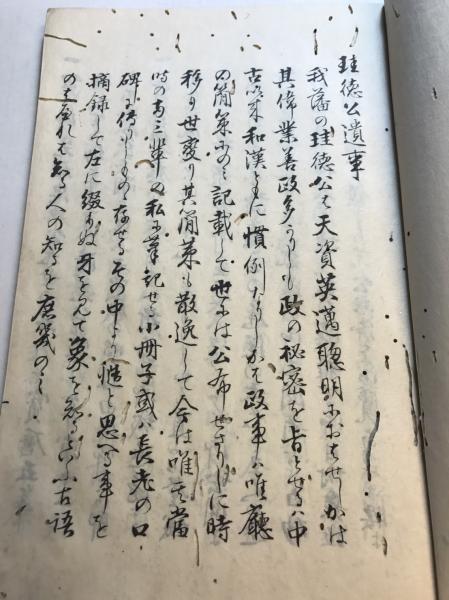 珪徳公遺事
我藩の珪徳公は天資英邁聡明におはせしかは
其偉業善政多かりしも政の秘密を旨とせるは中
古以来和漢ともに慣例なりしかは政事は唯廳
の簡策にのみ記載して世には公布せさりしに時
移り世変り其簡策も散逸して今は唯其當
時の 三輩の私に筆記せる小冊子或は長老の口
碑に傳りしもの存せるその中より慥と思へる事を
摘録して左に綴りぬ牙を見て象を知るといふ古語
のみれは知る人の知るを庶幾のみ